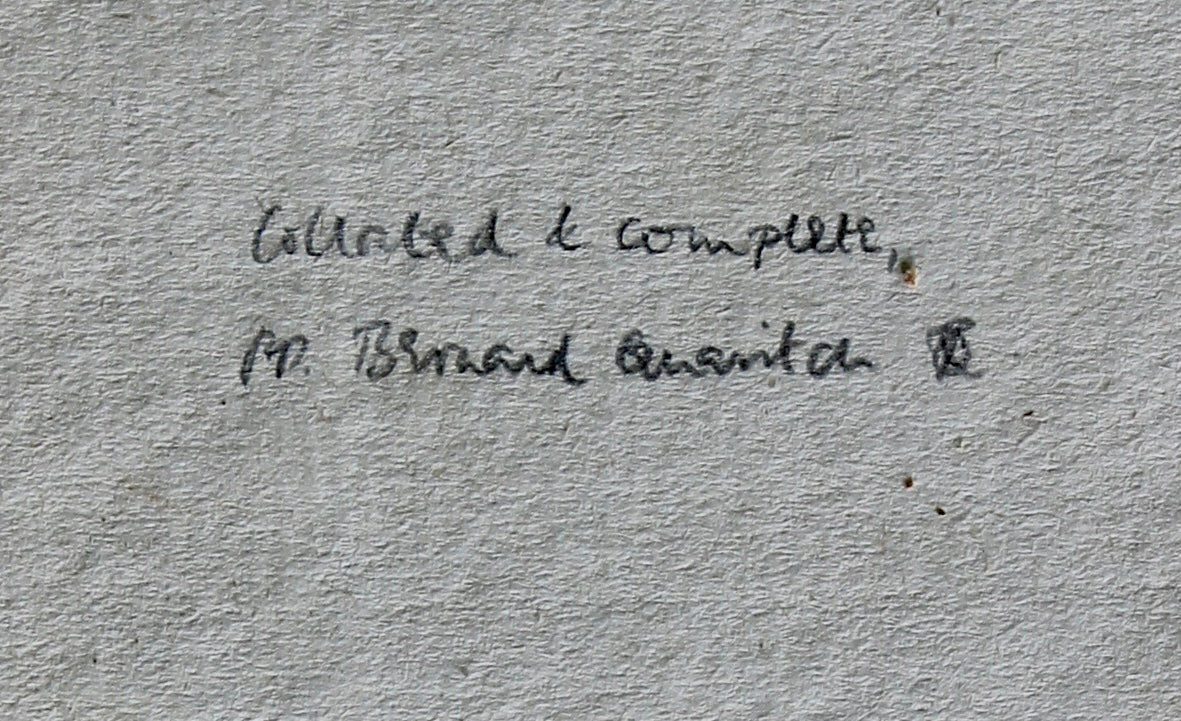 Collated & complete,
pp. Bernard Quaritch